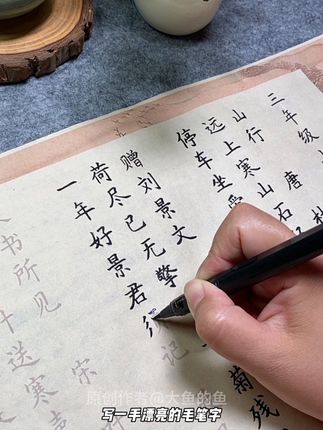 三年级
山行 唐 杜
远上寒山石
停车坐爱
赠刘景文
荷尽已无擎
菊残
一年好景君
记
书所见
宋
送寒声
原创作者@大鱼的鱼
写一手漂亮的毛笔字